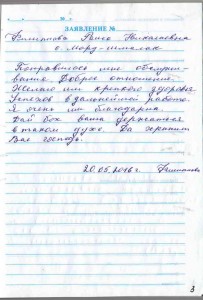 ЗАЯВЛЕНИЕ №
Раиса Николаевна
с. Морд-
Понравилось мне обслужи-
вание. Доброе отношение.
Желаю им крепкого здоровья
Успехов в дальнейшей работе.
Я очень им благодарна.
Дай бог
в таком духе. Да хранит
Вас господь.
20.05.2016г.
3